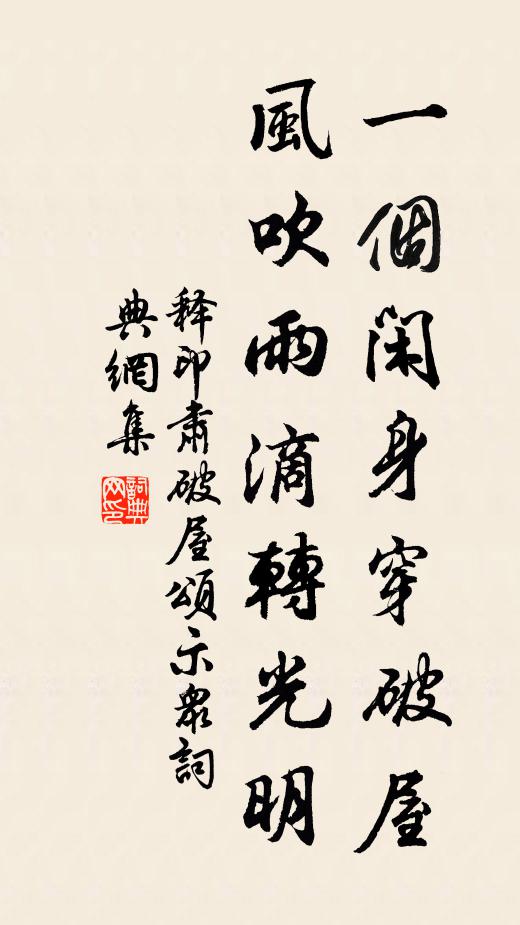 一個閑身穿破屋
風吹雨滴轉光明
释印肅破屋頌示衆詞
典網集
詞典
网印